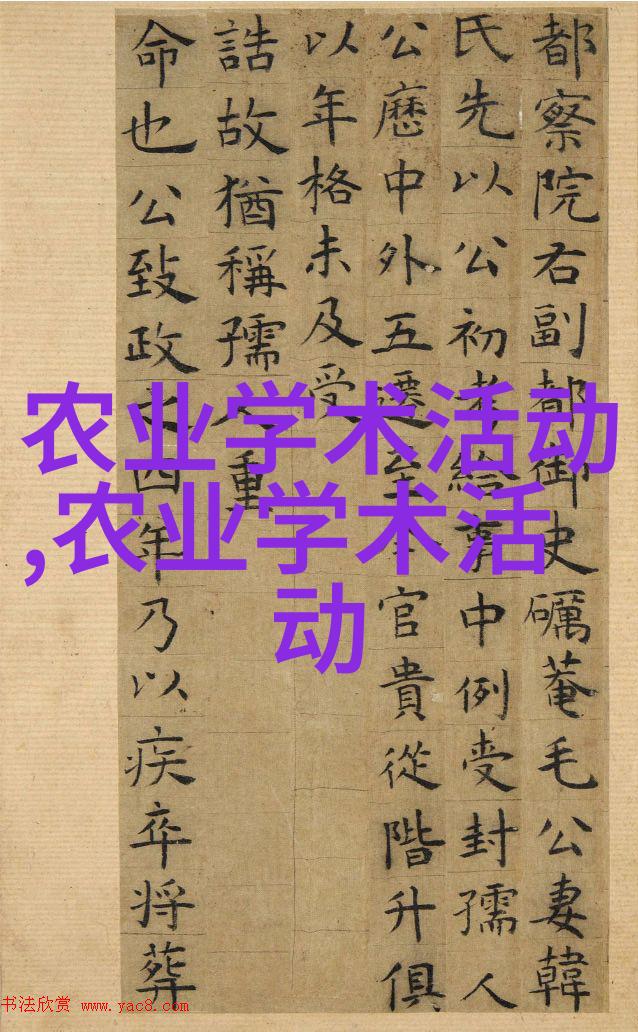 都察院右副都御史礪菴毛公妻韓
氏先以公初考給事中例受封孺人
公歷中外五遷至今官貴從階升俱
以年格未及受
誥故猶稱孺人重
命也公致政之四年乃以疾卒将葬
农业学术活动
,农业学术活
动
书法欣赏 www.yac8.com